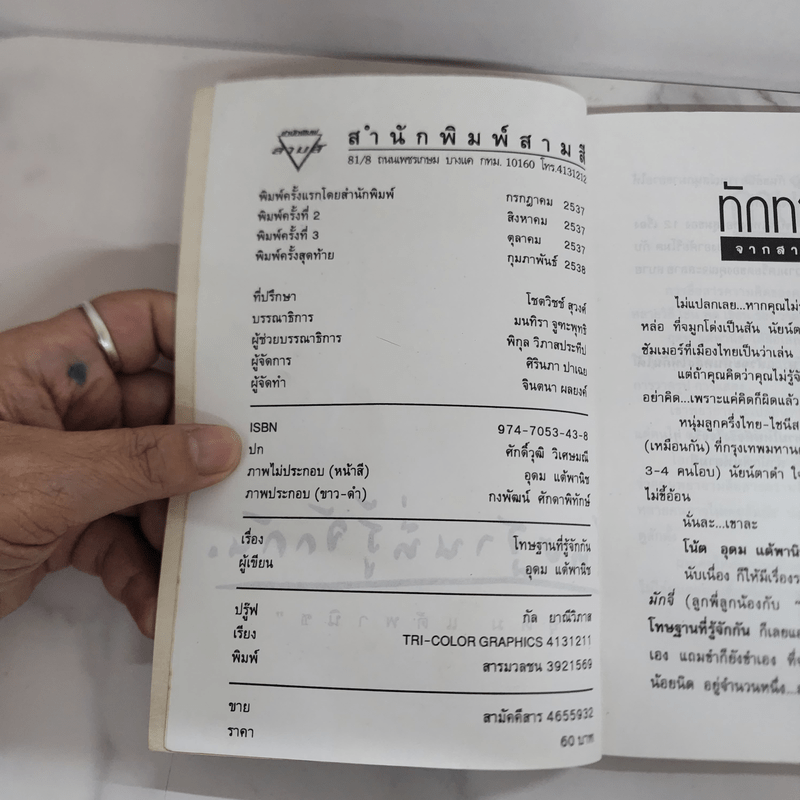 สามสี
สำนักพิมพ์สามสี
81/8 ถนนเพชรเกษม บางแค กทม. 10160 โทร.4131212
พิมพ์ครั้งแรกโดยสำนักพิมพ์ กรกฎาคม 2537
พิมพ์ครั้งที่ 2 สิงหาคม 2537
พิมพ์ครั้งที่ 3 ตุลาคม 2537
พิมพ์ครั้งสุดท้าย กุมภาพันธ์ 2538
ที่ปรึกษา โชตวิชช์ สุวงศ์
บรรณาธิการ มนทิรา จูฑะพุทธิ
ผู้ช่วยบรรณาธิการ พิกุล วิภาสประทีป
ผู้จัดการ ศิรินภา ปาเฉย
ผู้จัดทำ จินตนา ผลยงค์
ISBN 974-7053-43-8
ปก ศักดิ์วุฒิ วิเศษมณี
ภาพไม่ประกอบ (หน้าสี) อุดม แต้พานิช
ภาพประกอบ (ขาว-ดำ) กงพัฒน์ ศักดาพิทักษ์
เรื่อง โทษฐานที่รู้จักกัน
ผู้เขียน อุดม แต้พานิช
ปรู๊ฟ กัล ยาณีวิภาส
เรียง TRI-COLOR GRAPHICS 4131211
พิมพ์ สารมวลชน 3921569
ขาย สามัคคีสาร 4655932
ราคา 60 บาท
ทักท
จากสา
ไม่แปลกเลย...หากคุณไม่
หล่อ ที่จมูกโด่งเป็นสัน นัยน์ต
ซัมเมอร์ที่เมืองไทยเป็นว่าเล่น
แต่ถ้าคุณคิดว่าคุณไม่รู้จั
อย่าคิด...เพราะแค่คิดก็ผิดแล้ว
หนุ่มลูกครึ่งไทย-ไชนีส
(เหมือนกัน) ที่กรุงเทพมหานค
3-4 คนโอบ) นัยน์ตาดำ ใจ
ไม่ขี้อ้อน
นั่นละ...เขาละ
โน้ต อุดม แต้พานิ
นับเนื่อง ก็ให้มีเรื่องร
มักจี่ (ลูกพี่ลูกน้องกับ
โทษฐานที่รู้จักกัน ก็เลยแค
เอง แถมซ้ำก็ยังซ้ำเอง ที่จ
น้อยนิด อยู่จำนวนหนึ่ง...